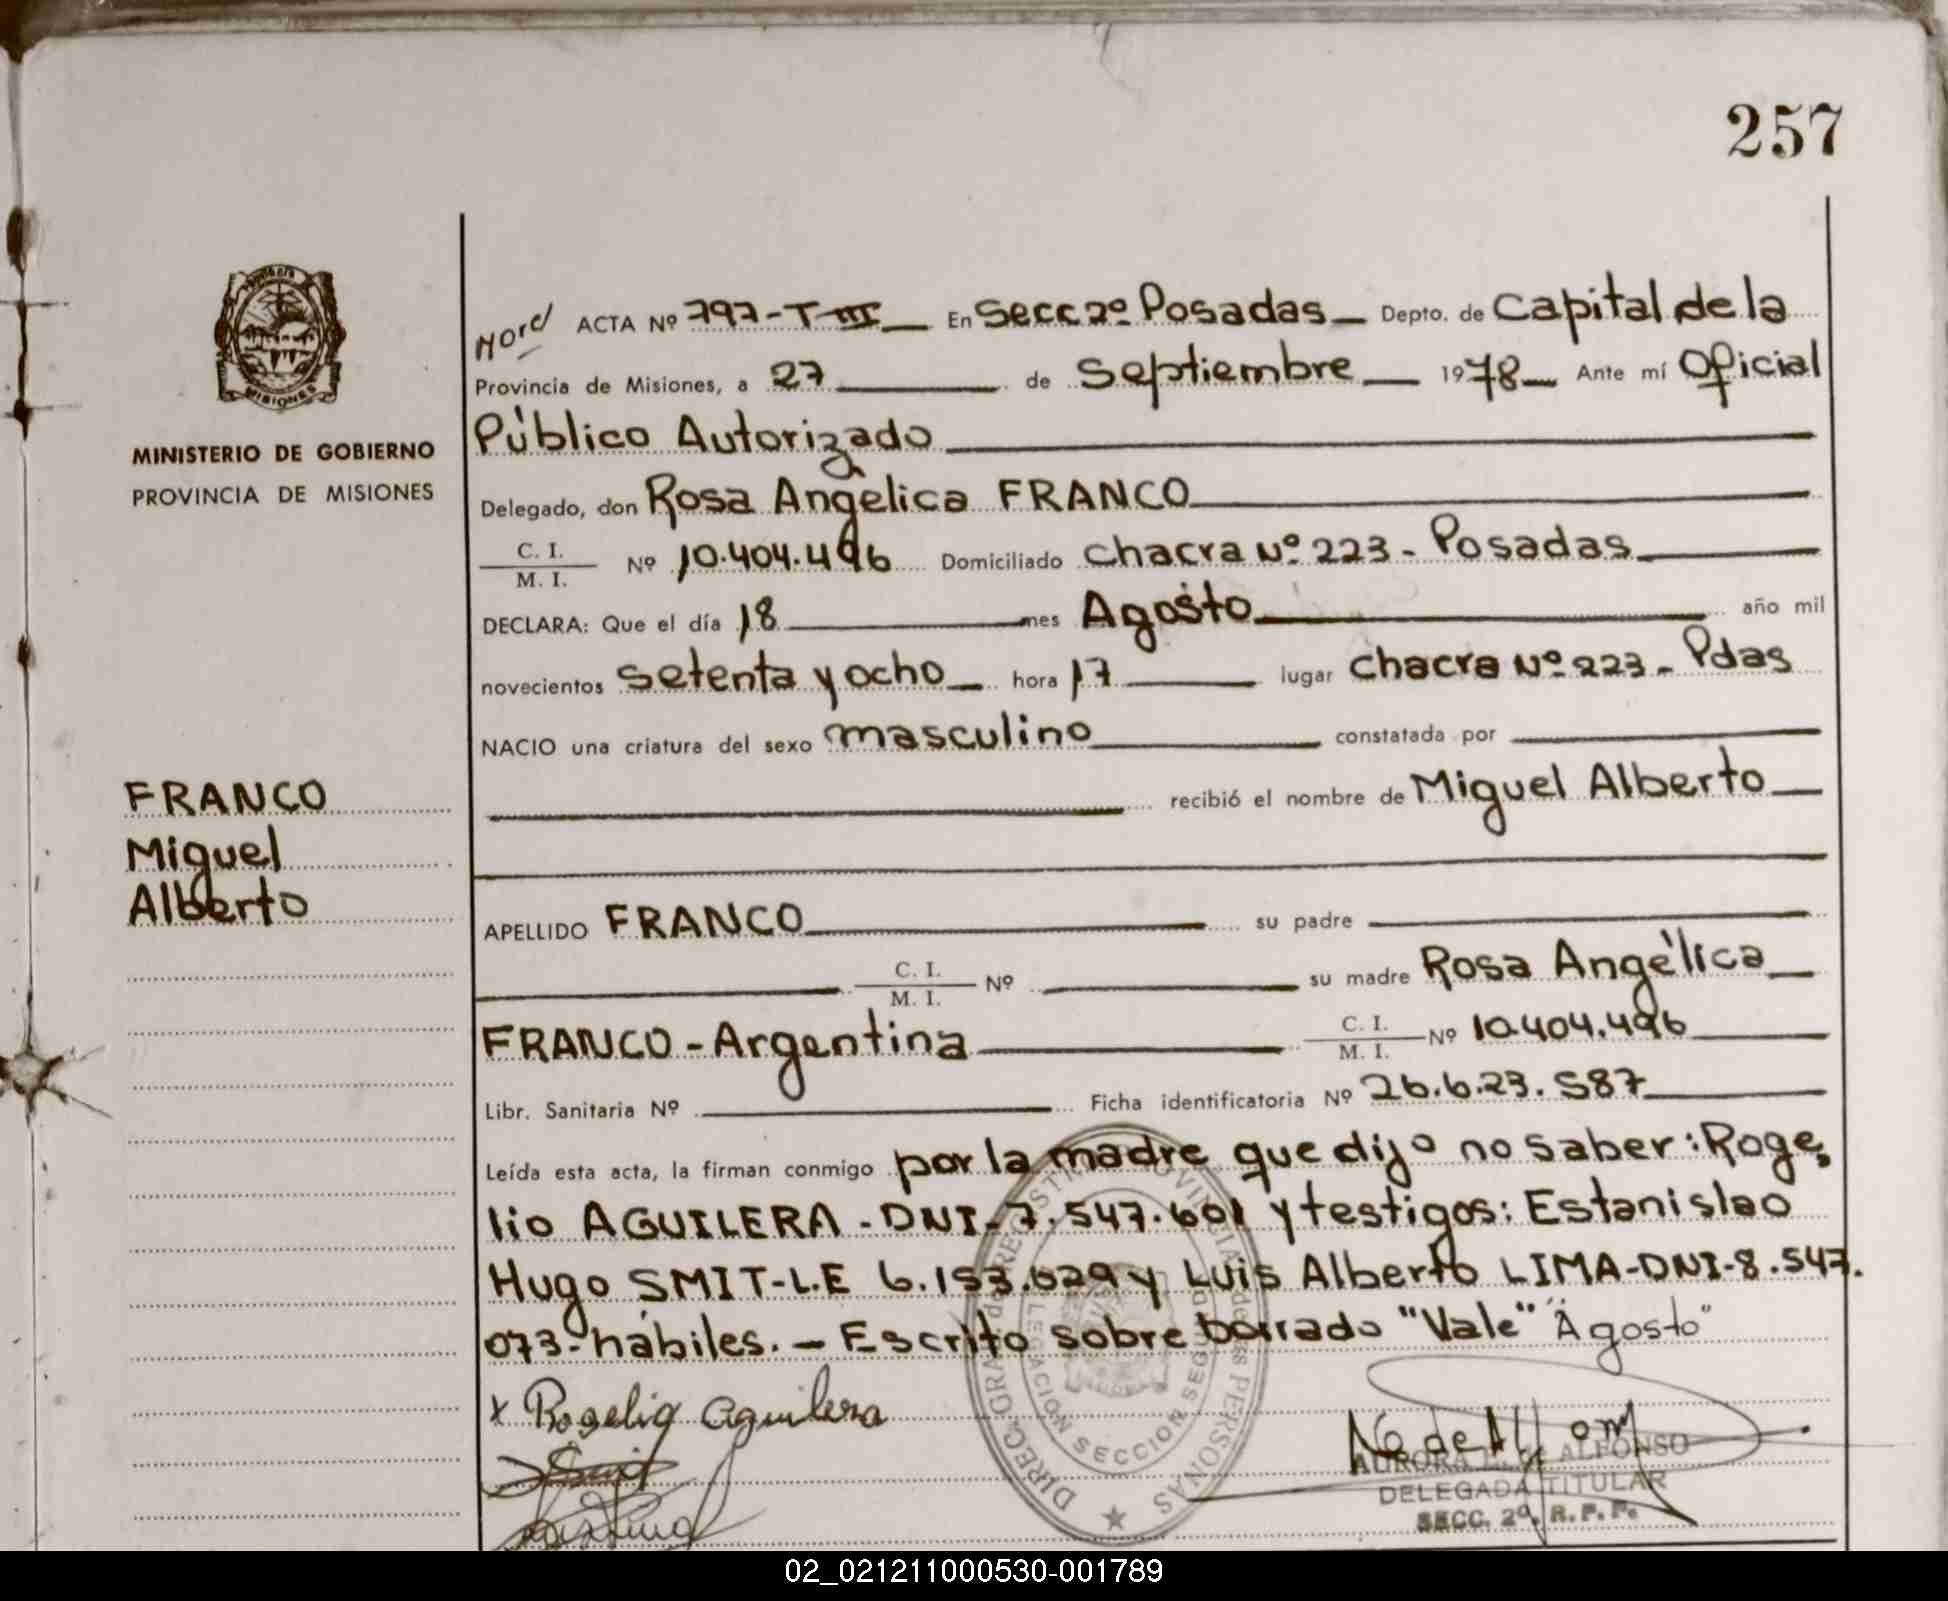 257
Nord ACTA Nº 797-T-III En Secc 2º Posadas Depto. de Capital de la
Provincia de Misiones, a 27 de Septiembre 1978 Ante mí Oficial
MINISTERIO DE GOBIERNO
PROVINCIA DE MISIONES
Público Autorizado
Delegado, don Rosa Angelica FRANCO
C. I.
M. I. Nº 10.404.496 Domiciliado chacra Nº 223 - Posadas
DECLARA: Que el día 18 mes Agosto año mil
novecientos setenta y ocho hora 17 lugar chacra Nº 223 - Pdas
NACIO una criatura del sexo masculino constatada por
recibió el nombre de Miguel Alberto
FRANCO
Miguel
Alberto
APELLIDO FRANCO su padre
C. I.
M. I. Nº su madre Rosa Angélica
FRANCO - Argentina C. I.
M. I. Nº 10.404.496
Libr. Sanitaria Nº Ficha identificatoria Nº 26.6.23.587
Leída esta acta, la firman conmigo por la madre que dijo no saber: Roge
lio AGUILERA - DNI - 7.547.601 y testigos: Estanislao
Hugo SMIT - L.E 6.153.629 y Luis Alberto LIMA - DNI - 8.547.
073 - hábiles. - Escrito sobre borrado "Vale" "Agosto"
x Rogelio aguilera
DIREC. GRAL. de REGISTRO PROVINCIAL de las PERSONAS
DELEGACION SECCION SEGUNDA
AURORA ALFONSO
DELEGADA TITULAR
SECC. 2º. R. P. P.
02_021211000530-001789